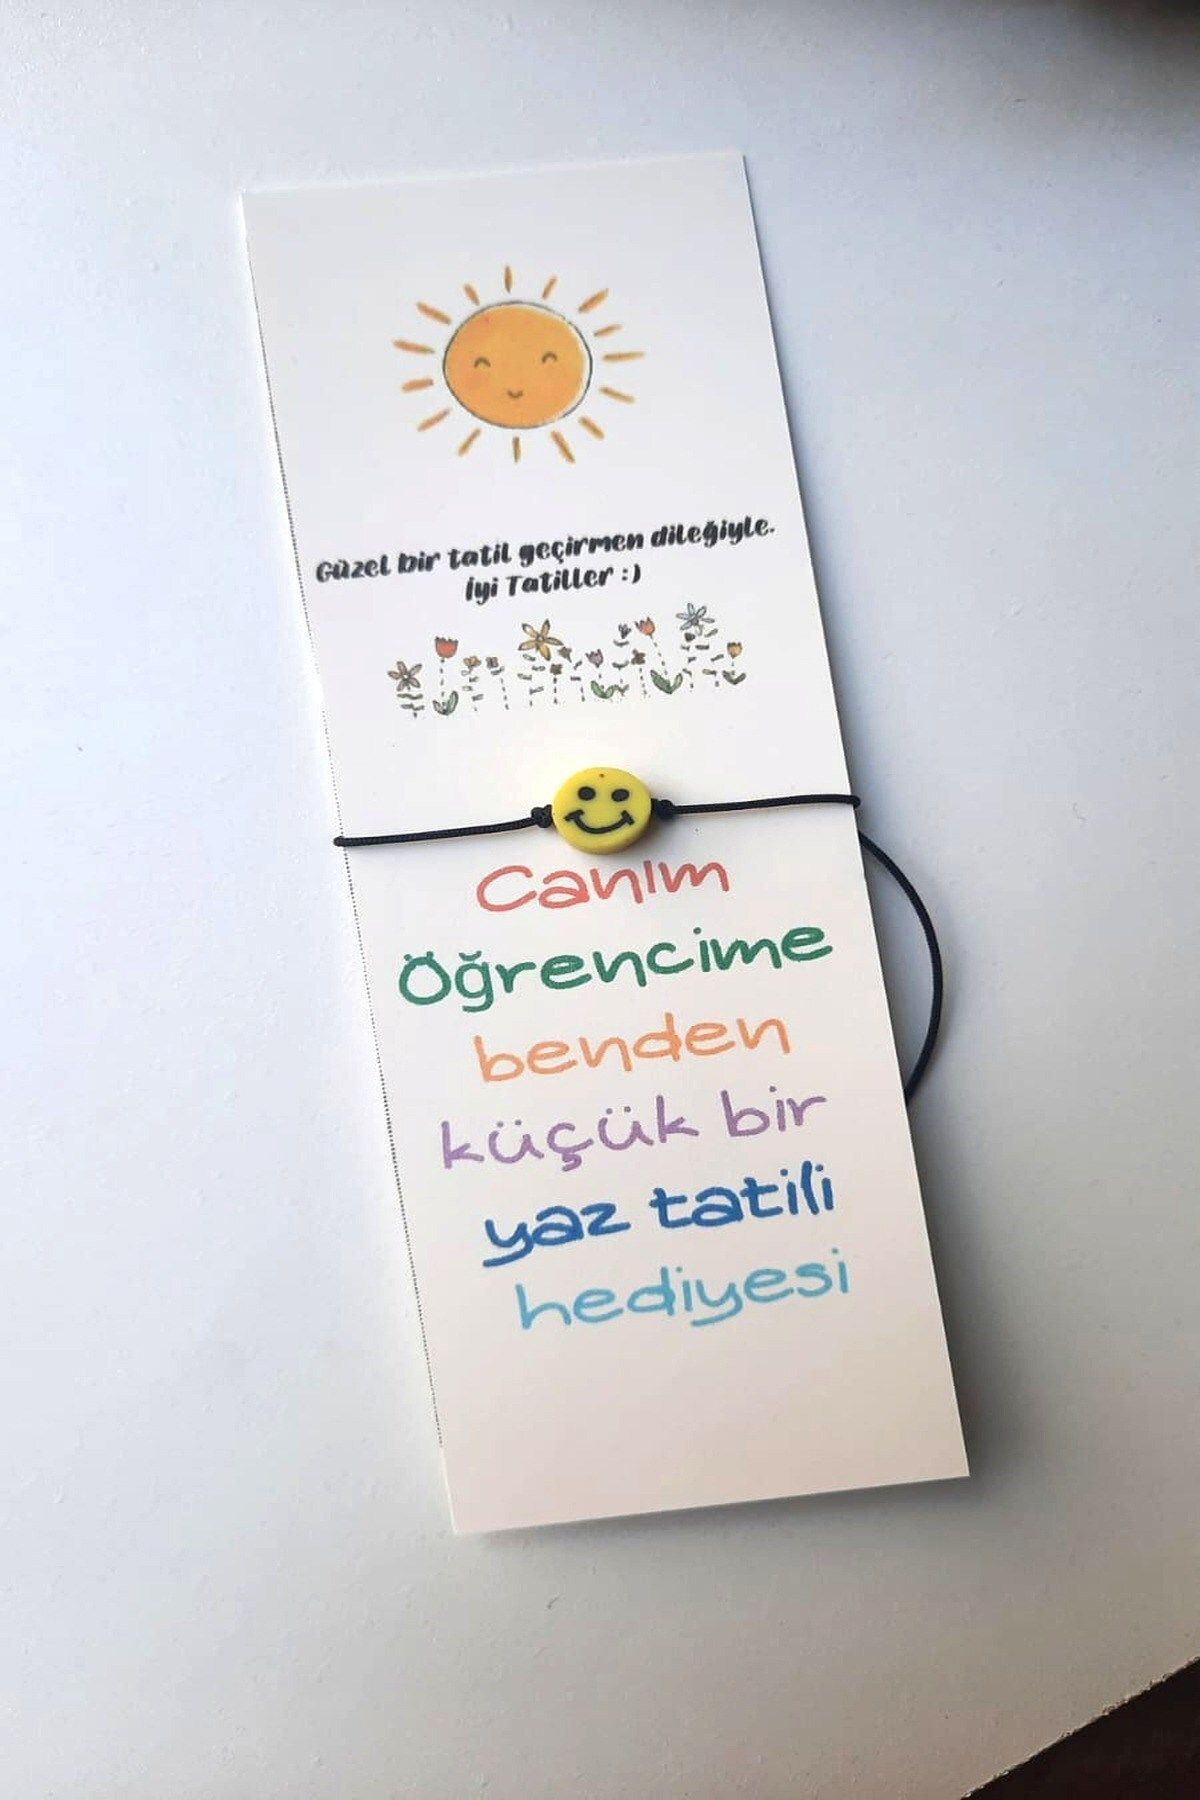 Güzel bir tatil geçirmen dileğiyle.
İyi Tatiller :)
Canım
Öğrencime
benden
küçük bir
yaz tatili
hediyesi